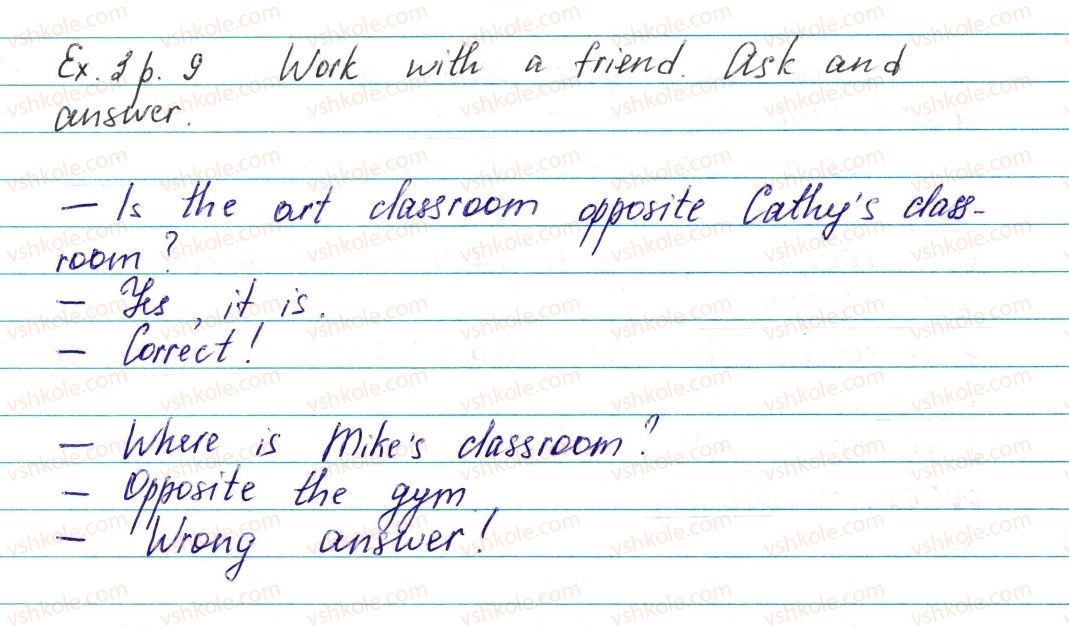 Ex. 2 p. 9 Work with a friend. Ask and
answer.
— Is the art classroom opposite Cathy's class-
room?
— Yes, it is.
— Correct!
— Where is Mike's classroom?
— Opposite the gym.
— Wrong answer!
vshkole.com